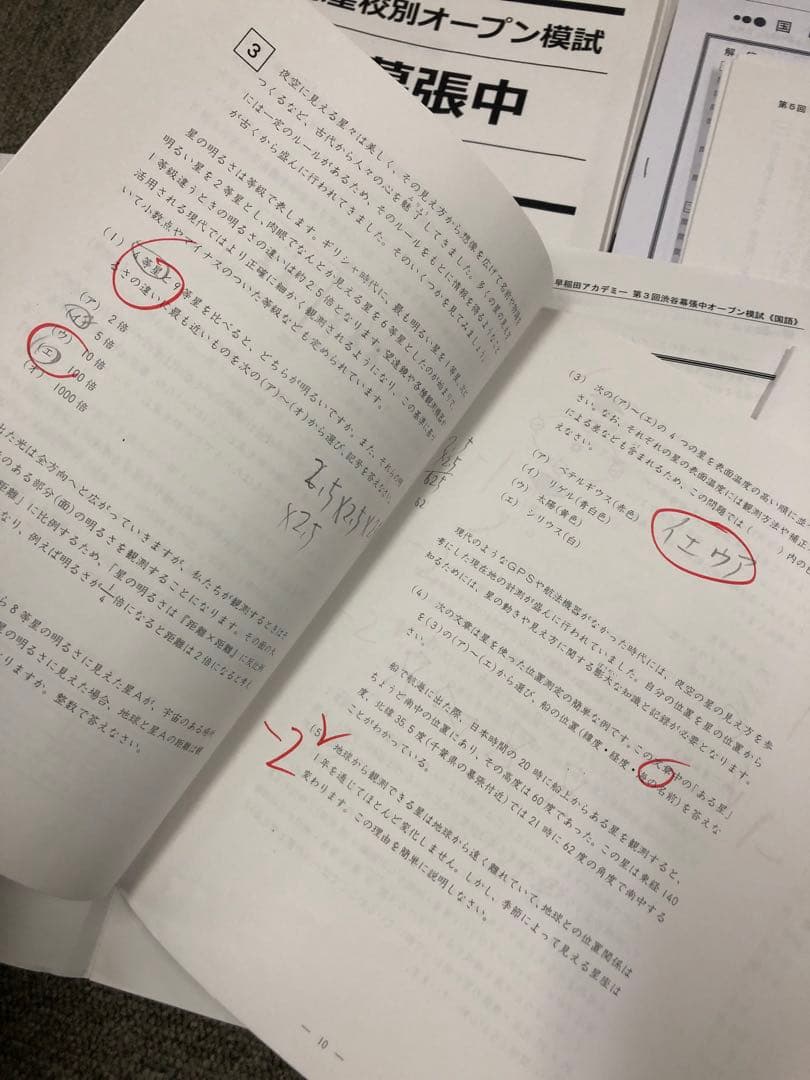 校別オープン模試
幕張中
国
第5回
3
夜空に見える星々は美しく、その見え方から想像を広げて名前や物語を
つくるなど、古代から人々の心を魅了してきました。多くの星の見え方
には一定のルールがあるため、そのルールをもとに情報を得るようなこと
が古くから盛んに行われてきました。そのいくつかを見てみましょう。
星の明るさは等級で表します。ギリシャ時代に、最も明るい星を1等星、次に
明るい星を2等星とし、肉眼でなんとか見える星を6等星としたのが始まりで、
1等級違うときの明るさの違いは約2.5倍となります。望遠鏡や各種観測機器が
活用される現代ではより正確に細かく観測されるようになり、この基準に基づ
いて小数点やマイナスのついた等級なども定められています。
(1) 4等星と9等星を比べると、どちらが明るいですか。また、それらの明
るさの違いに最も近いものを次の(ア)〜(オ)から選び、記号を答えなさい。
(ア) 2倍
(イ) 5倍
(ウ) 10倍
(エ) 100倍
(オ) 1000倍
2.5×2.5×2
×2.5
出た光は全方向へと広がっていきますが、私たちが観測するときはそ
のある部分(面)の明るさを観測することになります。その面の大
距離』に比例するため、「星の明るさは『距離×距離』に反比例
なり、例えば明るさが1/4倍になると距離は2倍になると考え
ら8等星の明るさに見えた星Aが、宇宙のある場所
星の明るさに見えた場合、地球と星Aの距離は何
なりますか。整数で答えなさい。
早稲田アカデミー 第3回渋谷幕張中オープン模試《国語》
(3) 次の(ア)〜(エ)の4つの星を表面温度の高い順に並
さい。なお、それぞれの星の表面温度には観測方法や補正
による差なども含まれるため、この問題では( )内の色
えなさい。
(ア) ベテルギウス(赤色)
(イ) リゲル(青白色)
(ウ) 太陽(黄色)
(エ) シリウス(白)
イエウア
62.5
62
現代のようなGPSや航法機器がなかった時代には、夜空の星の見え方を参
考にした現在地の計測が盛んに行われていました。自分の位置を星の位置から
知るためには、星の動きや見え方に関する膨大な知識と記録が必要となります。
(4) 次の文章は星を使った位置測定の簡単な例です。この文章中の「ある星」
を(3)の(ア)〜(エ)から選び、船の位置(緯度・経度・海の名前)を答えな
さい。
船で航海に出た際、日本時間の20時に船上からある星を観測すると、
ちょうど南中の位置にあり、その高度は60度であった。この星は東経140
度、北緯35.5度(千葉県の幕張付近)では21時に62度の角度で南中する
ことがわかっている。
-2
(5) 地球から観測できる星は地球から遠く離れていて、地球との位置関係は
1年を通じてほとんど変化しません。しかし、季節によって見える星座は
変わります。この理由を簡単に説明しなさい。
— 10 —